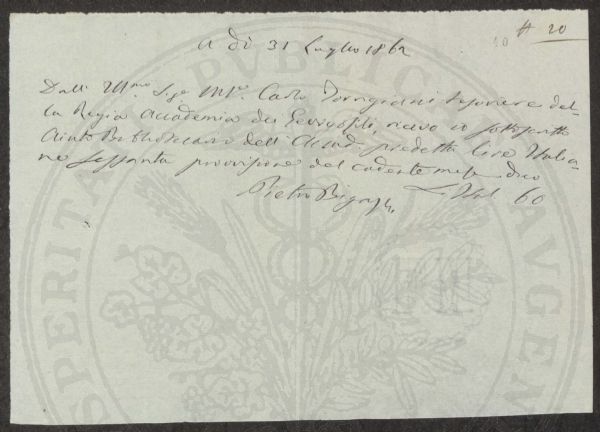 # 20
10
A dì 31 Luglio 1862
Dall' Ill.mo Sig.e M.se Carlo Torrigiani Tesoriere del-
la Regia Accademia dei Georgofili, ricevo io sottoscritto
Aiuto Bibliotecario dell' Accad. predetta lire Italia-
ne Sessanta provvisione del cadente mese dico
L. Ital. 60
Pietro Bigazzi
PROSPERITATI PUBLICAE AUGENDAE